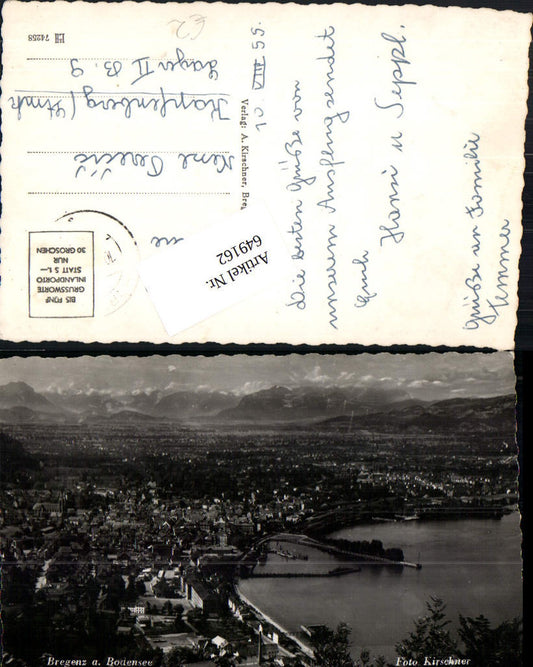 £2
74258
10. VIII 55.
Die besten Grüße von
unserem Ausflug sendet
Euch
Hansi u Seppl.
Grüße an Familie
Lager II B. 9
Kapfenberg / Stmk
Verlag: A. Kirschner, Bre
BIS FÜNF
GRUSSWORTE
INLANDPORTO
STATT S 1.—
NUR
30 GROSCHEN
Artikel Nr.
649162
Bregenz a. Bodensee
Foto Kirschner